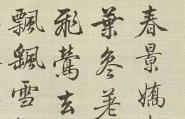 春景嬌
葉參差
飛鶯去
飄飖雪